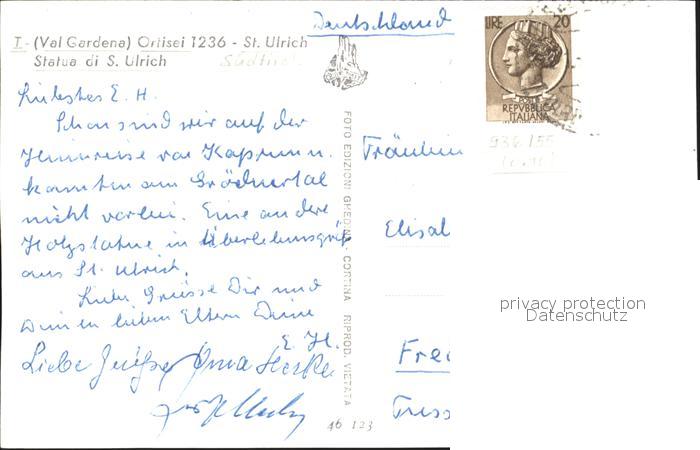 Deutschland
I - (Val Gardena) Ortisei 1236 - St. Ulrich
Statua di S. Ulrich
Südtirol
LIRE 20
POSTE
REPVBBLICA
ITALIANA
936/55
Liebstes E. H.
Schon sind wir auf der
Heimreise von Kaprun u.
konnten am Grödnertal
nicht vorbei. Eine andere
Holzstatue in Überlebensgröße
aus St. Ulrich.
Liebe Grüsse Dir und
Deinen lieben Eltern Deine
E. H.
Liebe Grüße
FOTO EDIZIONI GHEDINA - CORTINA RIPROD. VIETATA
46 123
Fräulein
Elisab
Frei
privacy protection
Datenschutz